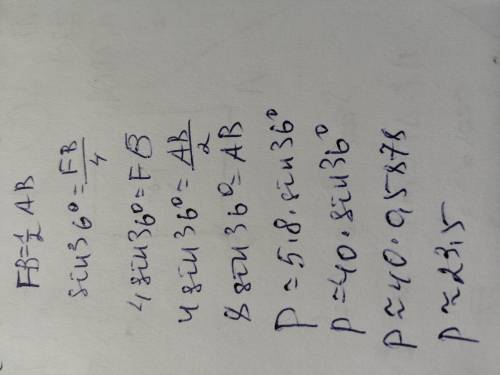 FB=½ AB
sin36°=FB/4
4sin36°=FB
4sin36°=AB/2
8sin36°=AB
P=5·8·sin36°
P=40·sin36°
P≈40·0,5878
P≈23,5